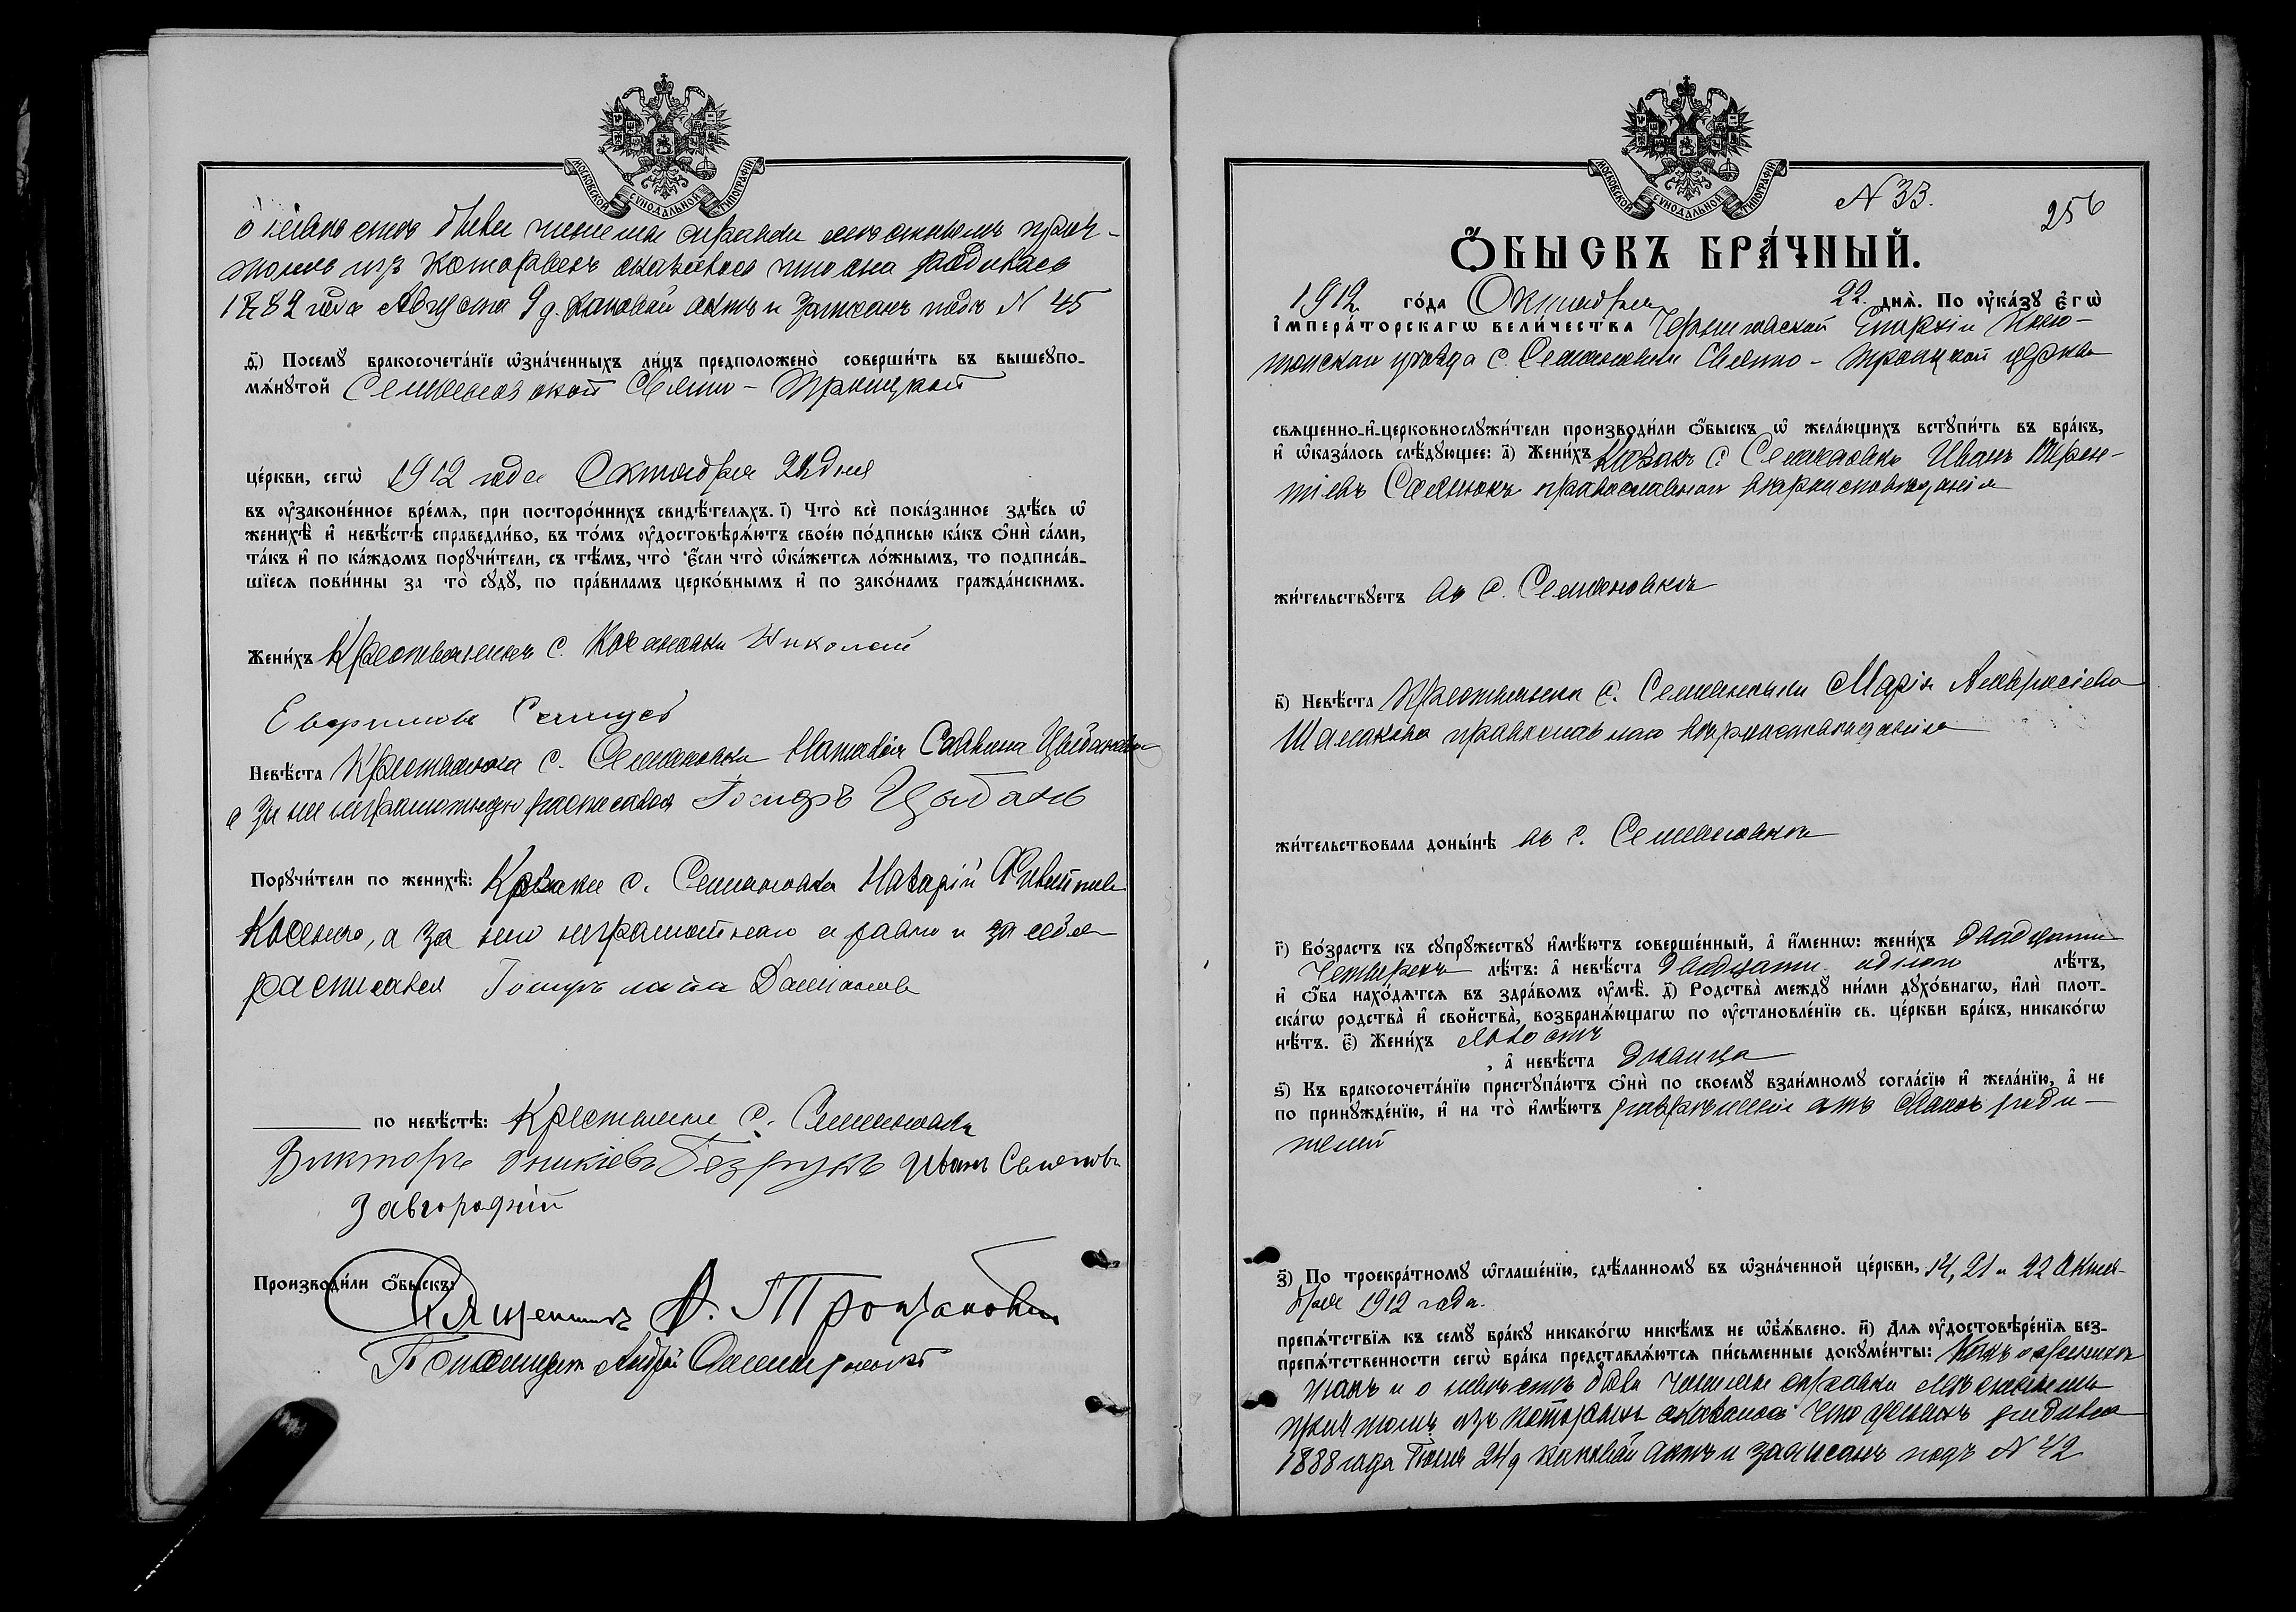 МОСКОВСКОЙ СУНОДАЛЬНОЙ ТИПОГРАФІИ
томъ изъ которыхъ оказалось что она родилась
1889 года Августа 9 д. каковый актъ и записанъ подъ N 45
д҃і) Посемꙋ̀ бракосочета́нїе ѡ҆зна́ченныхъ ли́цъ предположено̀ соверши́ть въ вышеꙋпо-
мѧ́нꙋтой Семеновской Свято-Троицкой
це́ркви, сегѡ̀ 1912 года Октября 22 дня
въ ᲂу҆зако́ненное вре́мѧ, при посторо́ннихъ свидѣ́телѧхъ. і҃) Что̀ всѐ пока́занное здѣ́сь ѡ҆
женихѣ̀ и҆ невѣ́стѣ справедли́во, въ то́мъ ᲂу҆достовѣрѧ́ютъ свое́ю по́дписью ка́къ ѻ҆нѝ са́ми,
та́къ и҆ по ка́ждомъ порꙋчи́тели, съ тѣ́мъ, что̀ є҆́сли что̀ ѡ҆ка́жетсѧ ло́жнымъ, то подписа́в-
шїесѧ пови́нны за то̀ сꙋдꙋ̀, по пра́виламъ церко́внымъ и҆ по зако́намъ гражда́нскимъ.
Жени́хъ Крестьянинъ с. Николай
Невѣ́ста Крестьянка с. Семеновки Наталія Саввина Цыбань
а за неграмотную расписался Цыбань
Порꙋчи́тели по женихѣ̀: Козаки с. Семеновки Назарій
Косенко, а за него неграмотнаго и равно и за себя
расписался
по невѣ́стѣ: Крестьяне с. Семеновки
Викторъ Иванъ Семеновъ
Завгородній
Производи́ли ѻ҆́быскъ:
Священникъ А.
Псаломщикъ Андрей
МОСКОВСКОЙ СУНОДАЛЬНОЙ ТИПОГРАФІИ
N 33.
256
Ѻ҆БЫСКЪ БРА́ЧНЫЙ.
1912 го́да Октября 22 днѧ̀. По ᲂу҆ка́зꙋ є҆гѡ̀
і҆мпера́торскагѡ вели́чества Черниговской Епархіи Коно-
топскаго уѣзда с. Семеновки Свято-Троицкой церкви
свѧщенно-и҆-церковнослꙋжи́тели производи́ли ѻ҆́быскъ ѡ҆ жела́ющихъ встꙋпи́ть въ бра́къ,
и҆ ѡ҆каза́лось слѣ́дꙋющее: а҃) Жени́хъ Козакъ с. Семеновки Иванъ Терен-
тіевъ православнаго вѣроисповѣданія
жи́тельствꙋетъ въ с. Семеновкѣ
в҃) Невѣ́ста Крестьянка с. Семеновки Марія Амвросіева
православнаго вѣроисповѣданія
жи́тельствовала доны́нѣ въ с. Семеновкѣ
г҃) Во́зрастъ къ сꙋпрꙋ́жествꙋ и҆мѣ́ютъ соверше́нный, а҆ и҆́меннѡ: жени́хъ двадцати
четырехъ лѣ́тъ: а҆ невѣ́ста двадцати одного лѣ́тъ,
и҆ ѻ҆́ба нахо́дѧтсѧ въ здра́вомъ ᲂу҆мѣ̀. д҃) Родства̀ междꙋ ни́ми дꙋхо́внагѡ, и҆лѝ плот-
ска́гѡ родства̀ и҆ сво́йства̀, возбранѧ́ющагѡ по ᲂу҆становле́нїю св. це́ркви бра́къ, никако́гѡ
нѣ́тъ. є҃) Жени́хъ холостъ
, а҆ невѣ́ста дѣвица
ѕ҃) Къ бракосочета́нїю пристꙋпа́ютъ ѻ҆нѝ по своемꙋ̀ взаи́мномꙋ согла́сїю и҆ жела́нїю, а҆ не
по принꙋжде́нїю, и҆ на то̀ и҆мѣ́ютъ разрѣшеніе отъ своихъ роди-
телей
з҃) По троекра́тномꙋ ѡ҆глаше́нїю, сдѣ́ланномꙋ въ ѡ҆зна́ченной це́ркви, 14, 21 и 22 Октя-
бря 1912 года.
препѧ́тствїѧ къ семꙋ̀ бра́кꙋ никако́гѡ никѣ́мъ не ѡ҆бъѧ́влено. и҃) Длѧ ᲂу҆достовѣре́нїѧ без-
препѧ́тственности сегѡ̀ бра́ка представлѧ́ютсѧ пи́сьменные докꙋме́нты: Какъ о женихѣ
такъ и о невѣстѣ были чинимы справки мѣстнымъ
причтомъ изъ которыхъ оказалось что женихъ родился
1888 года Іюня 24 д каковый актъ и записанъ подъ N 42